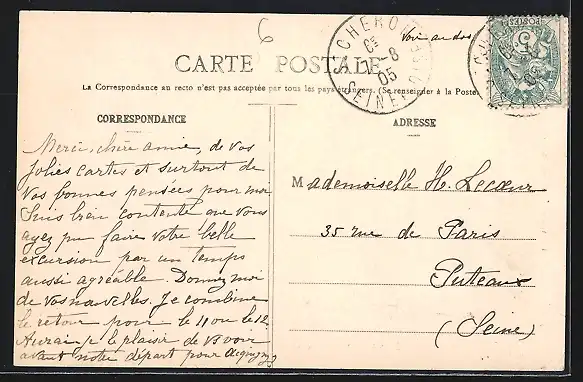 6
Voir au dos
CHEROY
8
05
SEINE
POSTES
5
CARTE POSTALE
La Correspondance au recto n'est pas acceptée par tous les pays étrangers. (Se renseigner à la Poste
CORRESPONDANCE
Merci, chère amie, de vos
jolies cartes et surtout de
vos bonnes pensées pour moi
Suis bien contente que vous
ayez pu faire votre belle
excursion par un temps
aussi agréable. Donnez moi
de vos nouvelles. Je combine
le retour pour le 11 ou le 12
Aurai je le plaisir de vs voir
avant notre départ pour
ADRESSE
Mademoiselle H. Lecœur
35 rue de Paris
Puteaux
(Seine)